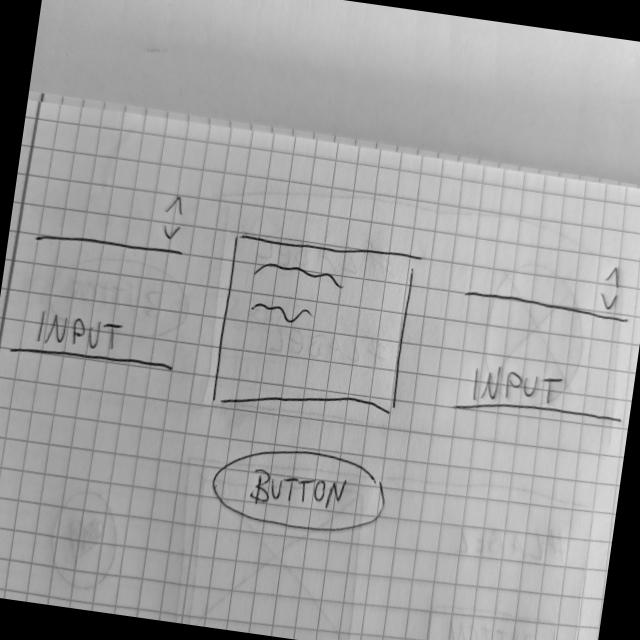 INPUT
INPUT
BUTTON